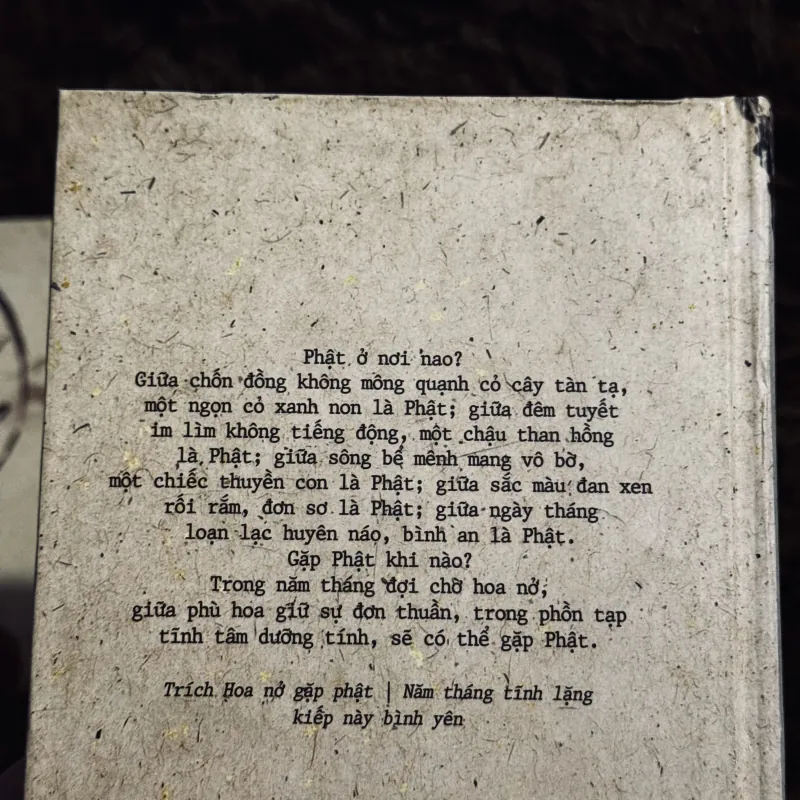 Phật ở nơi nao?
Giữa chốn đồng không mông quạnh cỏ cây tàn tạ,
một ngọn cỏ xanh non là Phật; giữa đêm tuyết
im lìm không tiếng động, một chậu than hồng
là Phật; giữa sông bể mênh mang vô bờ,
một chiếc thuyền con là Phật; giữa sắc màu đan xen
rối rắm, đơn sơ là Phật; giữa ngày tháng
loạn lạc huyên náo, bình an là Phật.
Gặp Phật khi nào?
Trong năm tháng đợi chờ hoa nở,
giữa phù hoa giữ sự đơn thuần, trong phồn tạp
tĩnh tâm dưỡng tính, sẽ có thể gặp Phật.
Trích Hoa nở gặp phật | Năm tháng tĩnh lặng
kiếp này bình yên